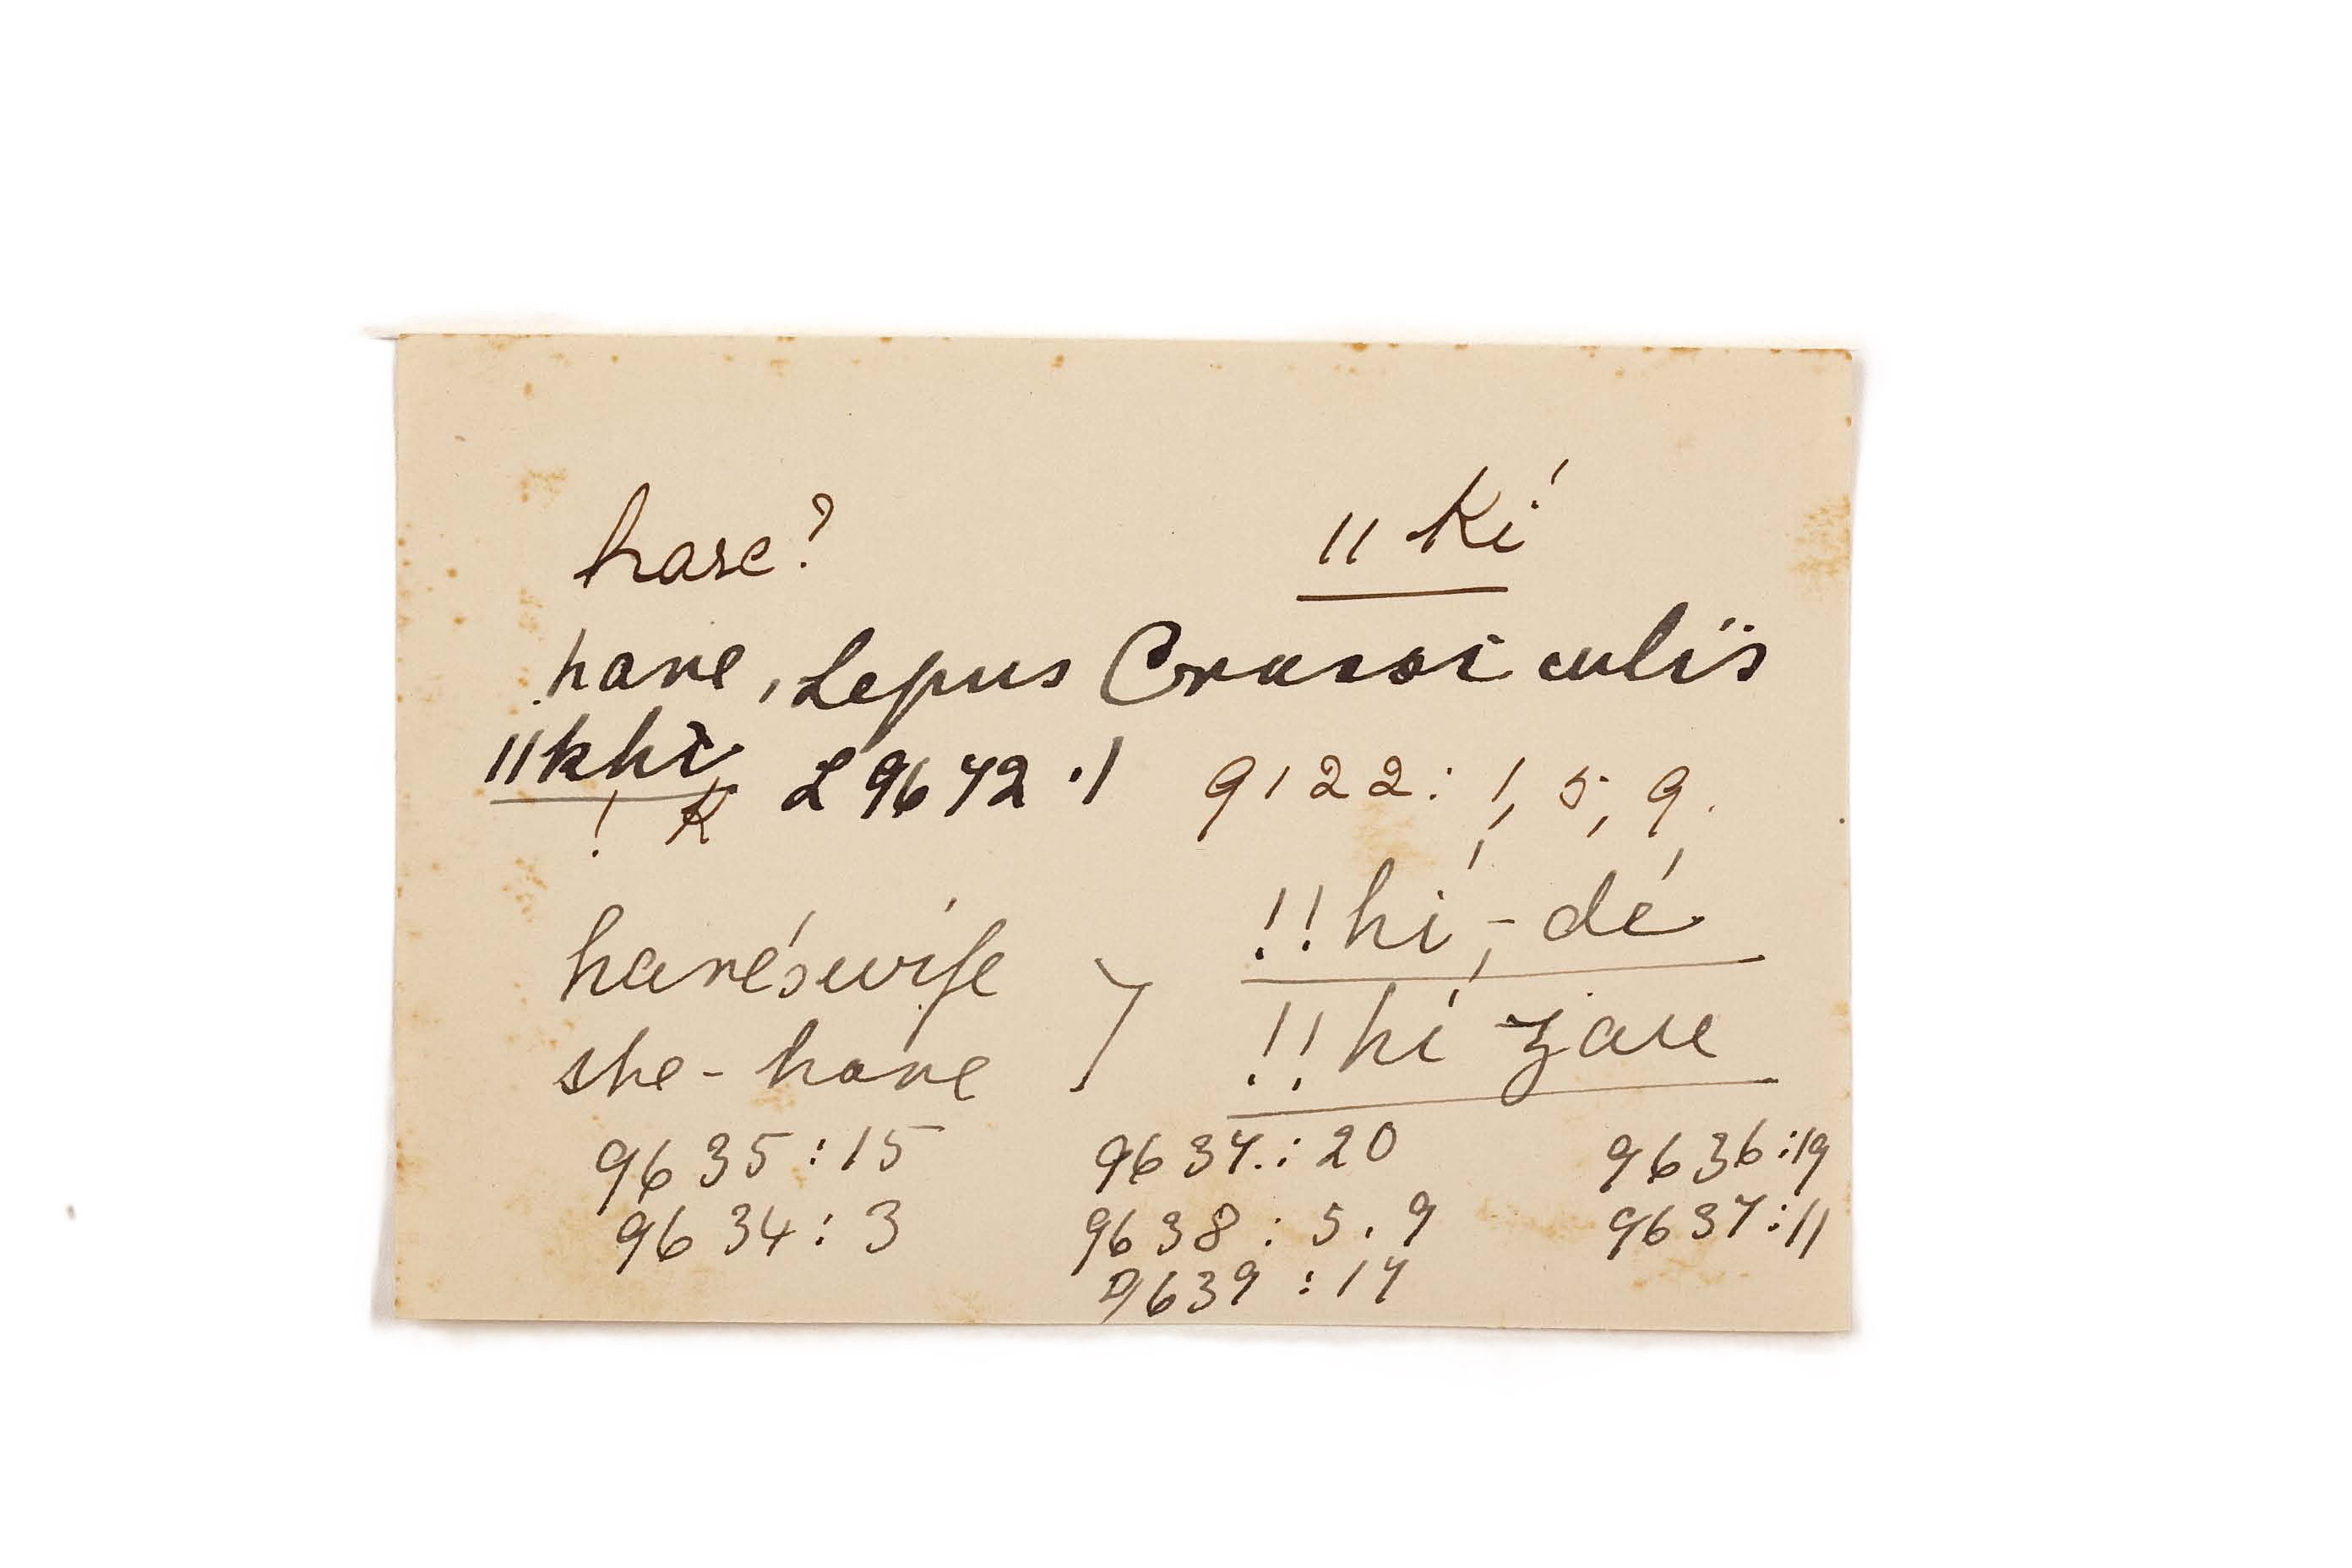 hare? ǁkí
hare, Lepus Crassicculis
ǁkhi L 9672.1 9122: 1, 5, 9.
! K
hare's wife !!hí,-dé
she-hare !!hí zaue
9635:15 9637.:20 9636:19
9634:3 9638:5.9 9637:11
9639:17